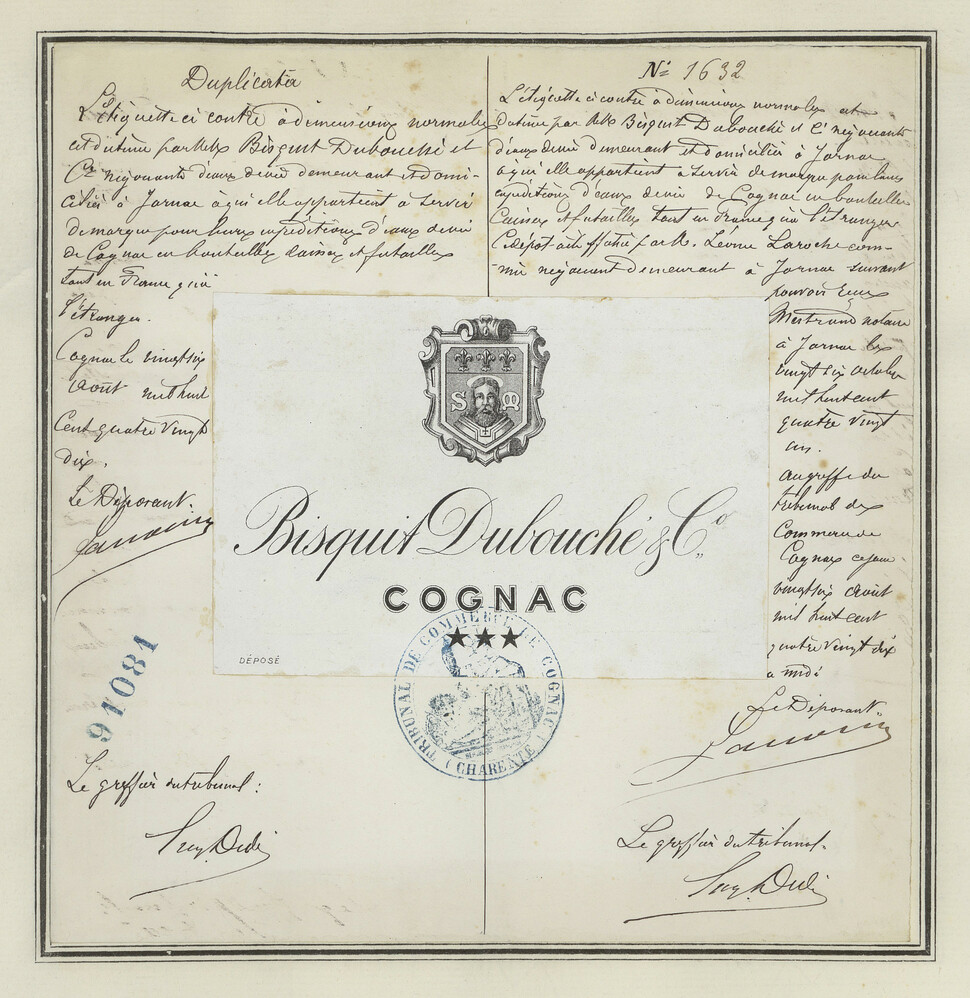 Duplicata
L'étiquette ci contre a dimensions normales
est détenue par MM Bisquit Dubouché et
Cie négociants d'eaux de vie demeurant et domi-
ciliés à Jarnac à qui elle appartient à servir
de marque pour leurs expéditions d'eaux de vie
de Cognac en bouteilles caisses et futailles
tant en France qu'à
l'étranger.
Cognac le vingt six
Août mil huit
Cent quatre vingt
dix.
Le Déposant
91081
Le greffier du tribunal :
No 1632
L'étiquette ci contre a dimensions normales est
détenue par MM Bisquit Dubouché et Cie négociants
d'eaux de vie demeurant et domiciliés à Jarnac
à qui elle appartient à servir de marque pour leurs
expéditions d'eaux de vie de Cognac en bouteilles
Caisses et futailles tant en France qu'à l'étranger
Ce dépôt a été effectué par M. Léonce Laroche com-
mis négociant demeurant à Jarnac suivant
pouvoir
notaire
à Jarnac les
vingt six octobre
mil huit cent
quatre vingt
un.
au greffe du
tribunal de
Commerce de
Cognac ce jour
vingt six Août
mil huit cent
quatre vingt dix
a midi
Le Déposant
Le greffier du tribunal
S M
Bisquit Dubouché & Co
COGNAC
★★★
DÉPOSÉ
TRIBUNAL DE COMMERCE DE COGNAC
(CHARENTE)